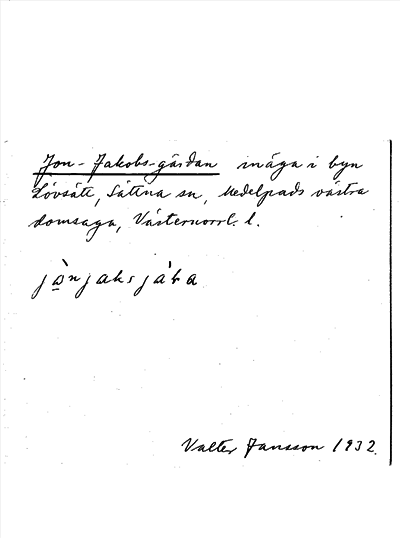 Jon-Jakobs-gärdan inäga i byn
Lövsåte, Sättna sn, Medelpads västra
domsaga, Västernorrl. l.
jȍnjaksjáɼa
Valter Jansson 1932.